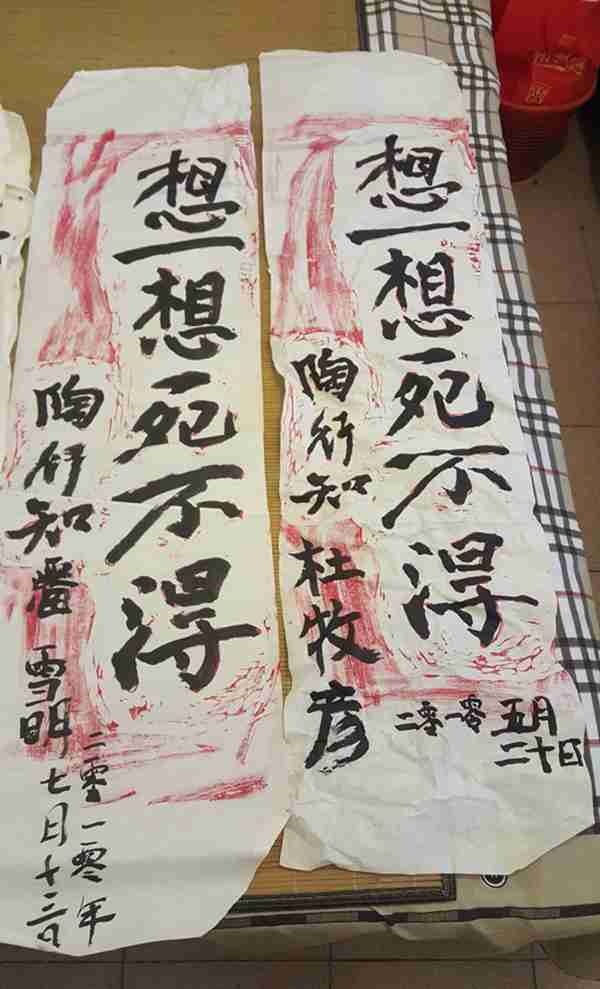 想一想死不得
陶行知 杜牧彦
二零一零 五月
二十日
想一想死不得
陶行知 雪明
二零一零年
七月十三日